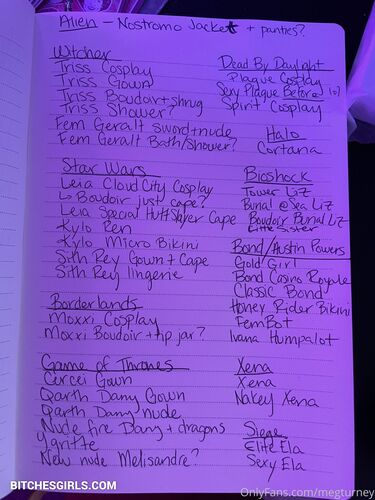 Alien - Nostromo Jacket + panties?
Witcher
Triss Cosplay
Triss Gown
Triss Boudoir + shrug
Triss Shower?
Fem Geralt sword + nude
Fem Geralt Bath/Shower?
Dead By Daylight
Plague Cosplay
Sexy Plague Before
Spirit Cosplay
Halo
Cortana
Star Wars
Leia Cloud City Cosplay
↳ Boudoir just cape?
Leia Special Hutt Slayer Cape
Kylo Ren
Kylo Micro Bikini
Sith Rey Gown + Cape
Sith Rey lingerie
Bioshock
Tower Liz
Burial @ Sea Liz
Boudoir Burial Liz
Little Sister
Bond/Austin Powers
Gold Girl
Bond Casino Royale
Classic Bond
Honey Rider Bikini
FemBot
Ivana Humpalot
Borderlands
Moxxi Cosplay
Moxxi Boudoir + tip jar?
Game of Thrones
Cercei Gown
Qarth Dany Gown
Qarth Dany nude
Nude fire Dany + dragons
Ygritte
New nude Melisandre?
Xena
Xena
Nakey Xena
Siege
Elite Ela
Sexy Ela
BITCHESGIRLS.COM
OnlyFans.com/megturney